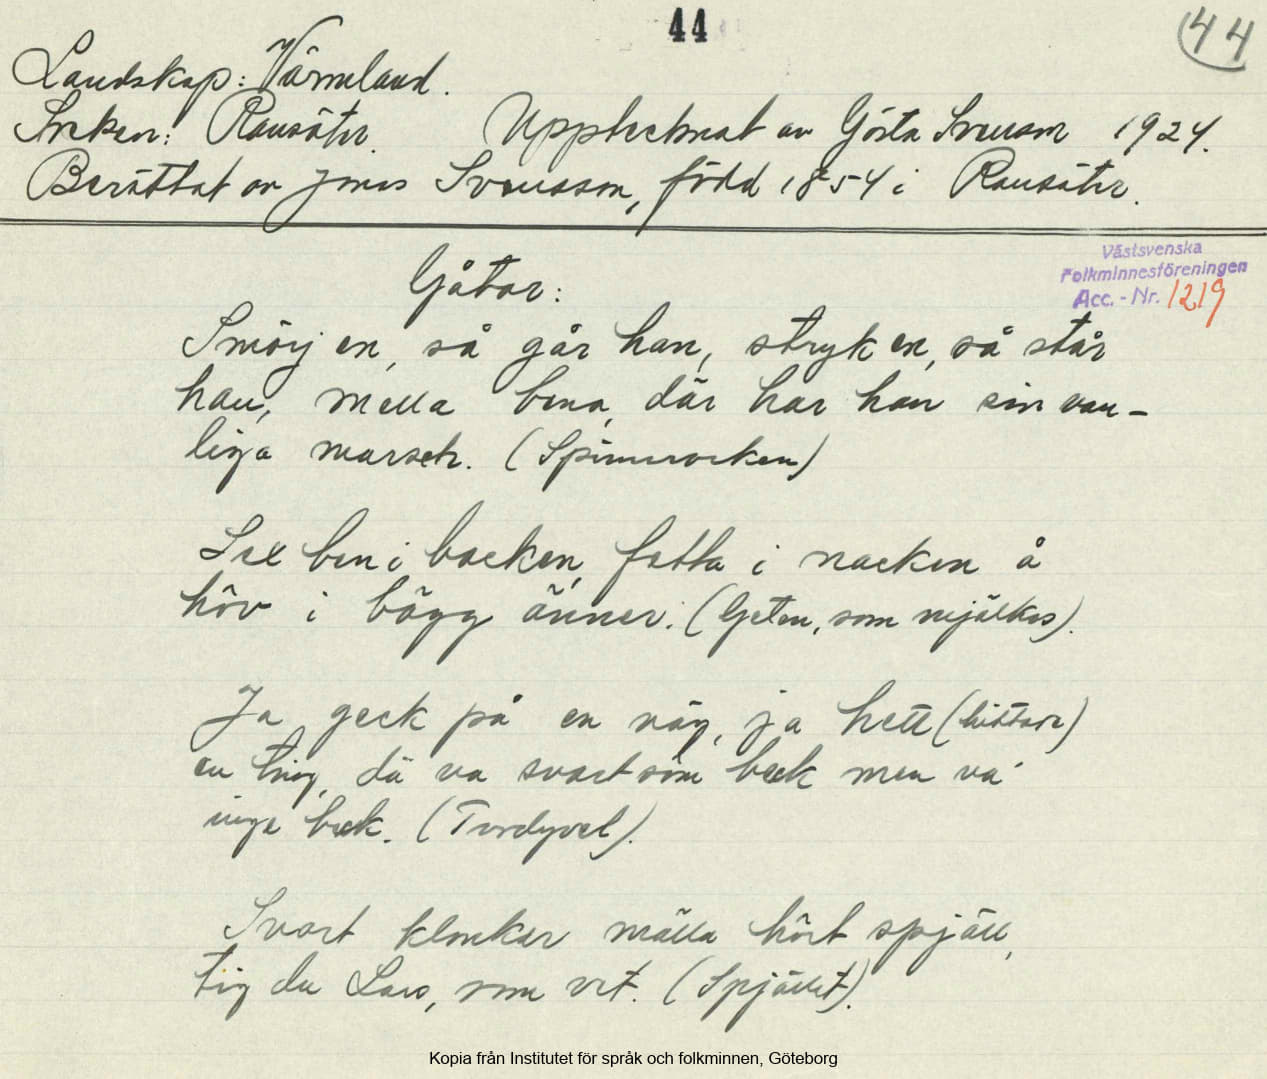 44
44
Landskap: Värmland.
Socken: Ransäter. Upptecknat av Gösta Svenson 1924.
Berättat av Jonas Svensson, född 1854 i Ransäter.
Västsvenska
Folkminnesföreningen
Acc. - Nr. 1219
Gåtor:
Smörj en, så går han, stryk en, så står
han, mella bena, där har han sin van-
liga marsch. (Spinnrocken)
Sex ben i backen, fatta i nacken å
höv i bägg änner. (Geten, som mjölkas).
Ja geck på en väg, ja hett (hittade)
en ting, dä va svart som beck men va
inga beck. (Tordyvel).
Svart klonkar mälla hört spjäll,
tig du Lars, som vet. (Spjället).
Kopia från Institutet för språk och folkminnen, Göteborg